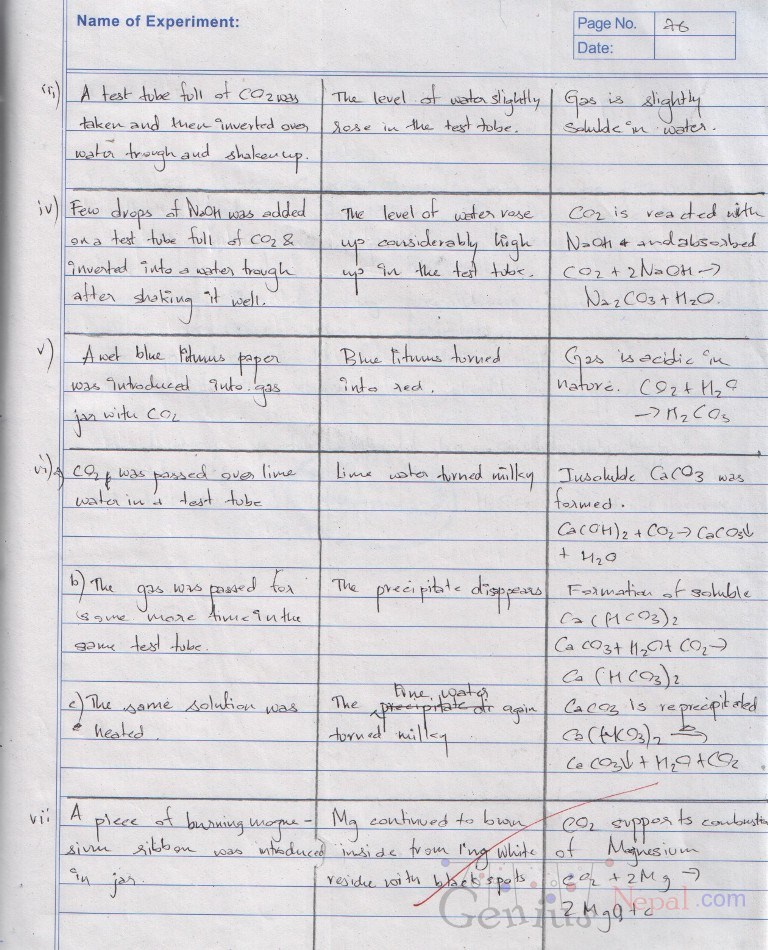 Name of Experiment:
Page No. 76
Date:
iii)
A test tube full of CO2 was
taken and then inverted over
water trough and shaken up.
The level of water slightly
rose in the test tube.
Gas is slightly
soluble in water.
iv)
Few drops of NaOH was added
on a test tube full of CO2 &
inverted into a water trough
after shaking it well.
The level of water rose
up considerably high
up in the test tube.
CO2 is reacted with
NaOH and absorbed
CO2 + 2NaOH →
Na2CO3 + H2O.
v)
A wet blue litmus paper
was introduced into gas
jar with CO2
Blue litmus turned
into red.
Gas is acidic in
nature. CO2 + H2O
→ H2CO3
vi)
CO2 was passed over lime
water in a test tube
Lime water turned milky
Insoluble CaCO3 was
formed.
Ca(OH)2 + CO2 → CaCO3↓
+ H2O
b) The gas was passed for
some more time in the
same test tube.
The precipitate disppears
Formation of soluble
Ca(HCO3)2
CaCO3 + H2O + CO2 →
Ca(HCO3)2
c) The same solution was
heated.
lime water
The precipitate again
turned milky
CaCO3 is reprecipitated
Ca(HCO3)2
CaCO3↓ + H2O + CO2
vii
A piece of burning magne-
sium ribbon was introduced
in jar.
Mg continued to burn
inside from ing white
residue with black spots
CO2 supports combustion
of Magnesium
CO2 + 2Mg →
2MgO + C
Genius Nepal.com